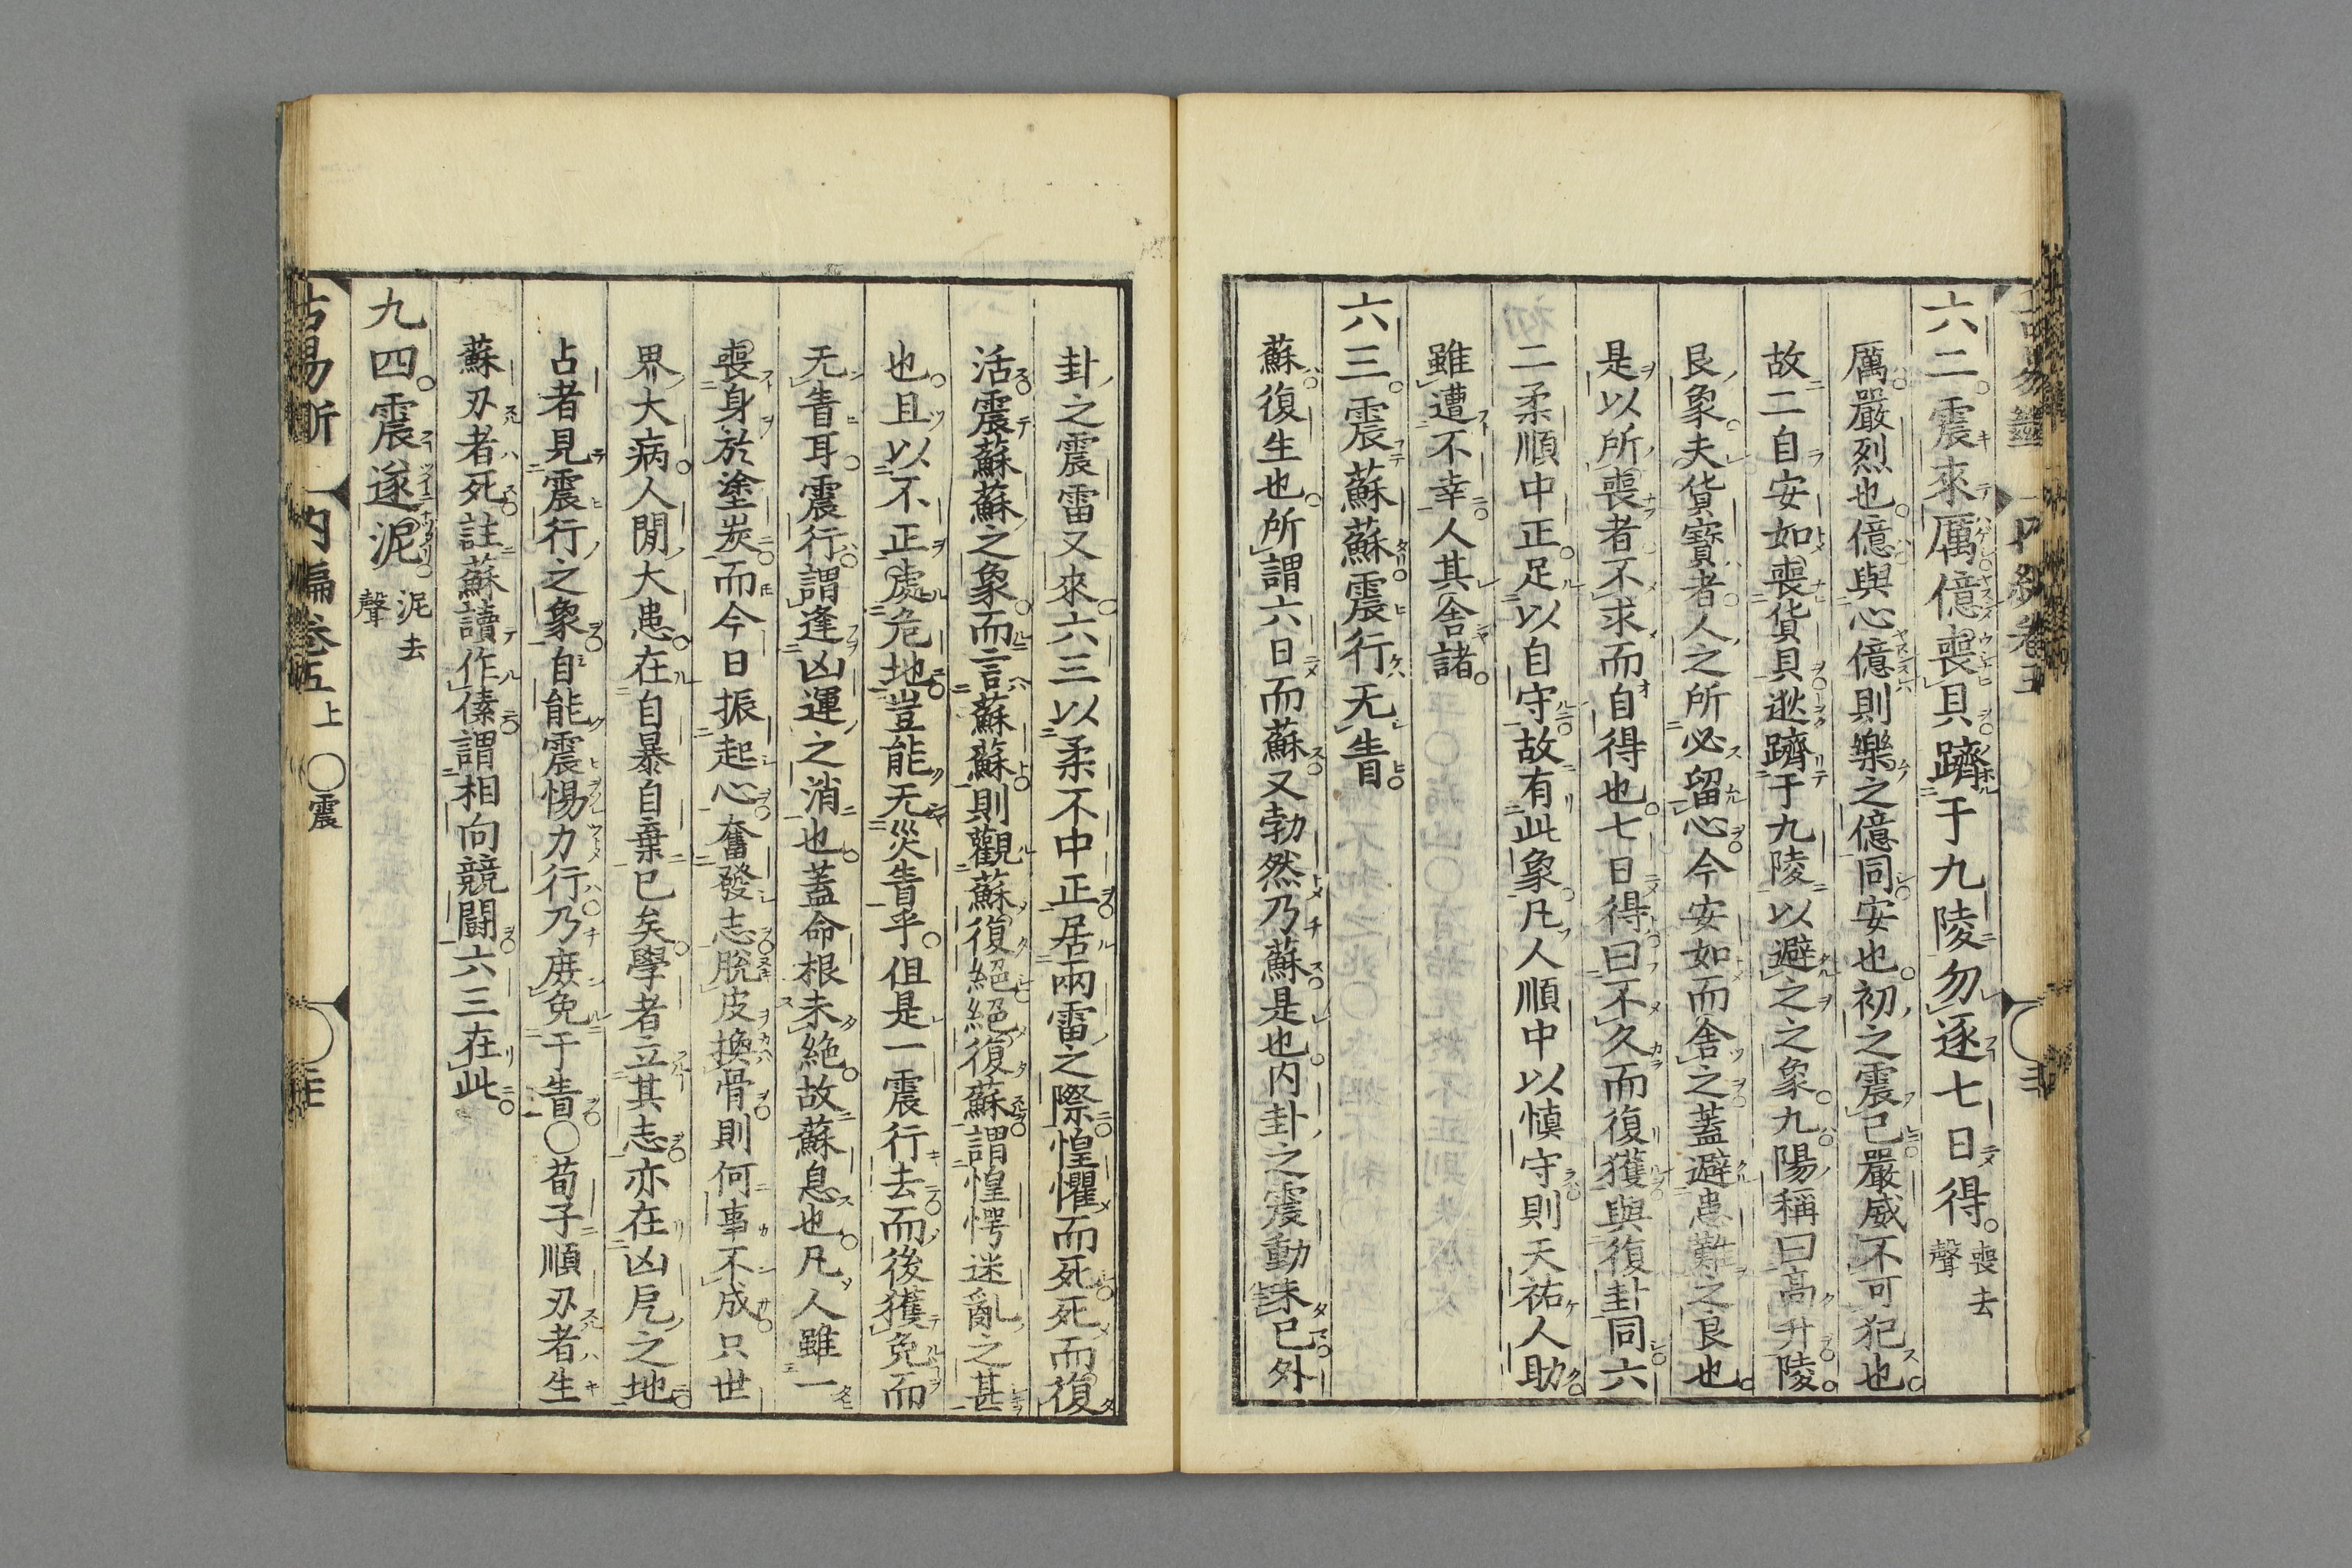 六二。震來厲億喪貝躋于九陵勿逐七日得。喪去聲
厲嚴烈也億與心億則樂之億同安也。初之震已嚴威不可犯也。
故二自安如喪貨貝逖躋于九陵以避之之象。九陽稱曰高升陵。
艮象。夫貨寶者。人之所必留心今安如而舍之蓋避患難之良也。
是以所喪者不求而自得也。七日得曰不久而復獲與復卦同六
二柔順中正。足以自守故有此象。凡人順中以慎守則天祐人助
雖遭不幸人其舍諸。
六三。震蘇蘇震行无眚
蘇復生也。所謂六日而蘇又勃然乃蘇是也。内卦之震動未已外
卦之震雷又來。六三以柔不中正居兩雷之際惶懼而死死而復
活震蘇蘇之象。而言蘇蘇則觀蘇復絕絕復蘇謂惶愕迷亂之甚
也。且以不正處危地豈能无災眚乎。但是一震行去而後獲免而
无眚耳。震行謂逢凶運之消也。蓋命根未絶。故蘇息也。凡人雖一
喪身於塗炭而今日振起心奮發志脫皮換骨則何事不成只世
界大病。人間大患。在自暴自棄已矣。學者立其志亦在凶卮之地
占者見震行之象自能震惕力行乃庶免于眚〇荀子順刄者生
蘇刄者死註蘇讀作傃謂相向競鬭六三在此
九四。震遂泥泥去聲
占易斷 内編卷五上 〇震